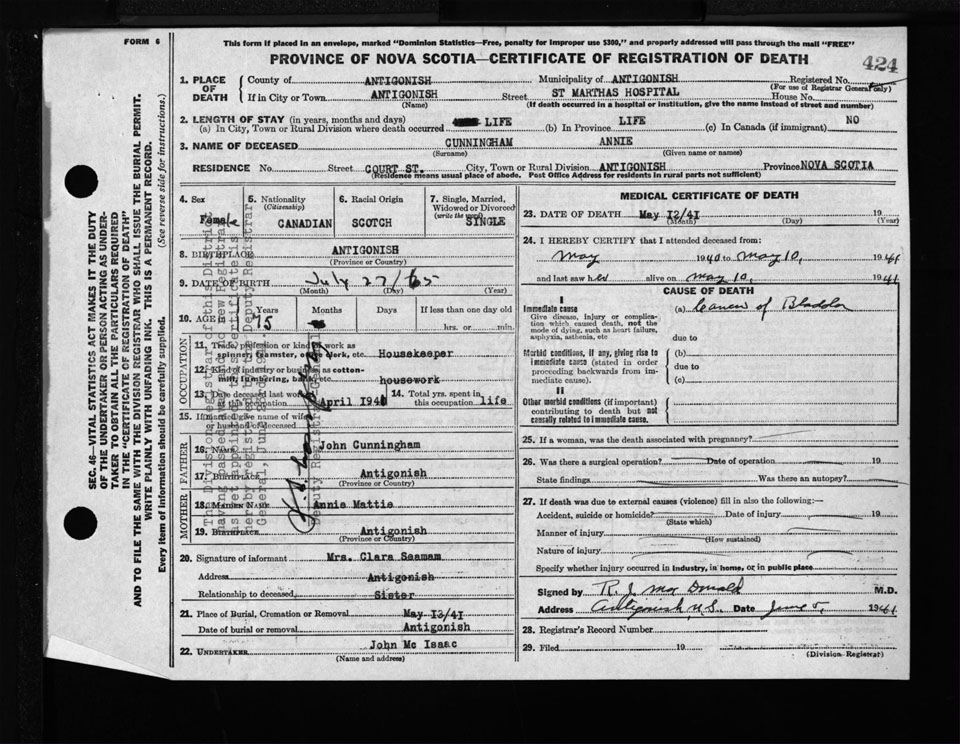 FORM 6
This form if placed in an envelope, marked "Dominion Statistics—Free, penalty for improper use $300," and properly addressed will pass through the mail "FREE"
PROVINCE OF NOVA SCOTIA—CERTIFICATE OF REGISTRATION OF DEATH
424
1. PLACE OF DEATH
County of ANTIGONISH Municipality of ANTIGONISH Registered No.
(For use of Registrar General only)
If in City or Town ANTIGONISH Street ST MARTHAS HOSPITAL House No.
(Name) (If death occurred in a hospital or institution, give the name instead of street and number)
2. LENGTH OF STAY (in years, months and days)
(a) In City, Town or Rural Division where death occurred LIFE (b) In Province LIFE (c) In Canada (if immigrant) NO
3. NAME OF DECEASED CUNNINGHAM ANNIE
(Surname) (Given name or names)
RESIDENCE No. Street COURT ST. City, Town or Rural Division ANTIGONISH Province NOVA SCOTIA
(Residence means usual place of abode. Post Office Address for residents in rural parts not sufficient)
4. Sex Female
5. Nationality (Citizenship) CANADIAN
6. Racial Origin SCOTCH
7. Single, Married, Widowed or Divorced (write the word) SINGLE
8. BIRTHPLACE ANTIGONISH
(Province or Country)
9. DATE OF BIRTH July 27/65
(Month) (Day) (Year)
10. AGE Years 75 Months Days If less than one day old
hrs. or min.
OCCUPATION
11. Trade, profession or kind of work as
spinner, teamster, office clerk, etc. Housekeeper
12. Kind of industry or business as cotton-
mill, lumbering, bank, etc. housework
13. Date deceased last worked at this occupation April 1940
14. Total yrs. spent in this occupation life
15. If married give name of wife or husband of deceased
FATHER
16. Name John Cunningham
17. BIRTHPLACE Antigonish
(Province or Country)
MOTHER
18. MAIDEN NAME Annie Mattie
19. BIRTHPLACE Antigonish
(Province or Country)
20. Signature of informant Mrs. Clara Seamam
Address Antigonish
Relationship to deceased Sister
21. Place of Burial, Cremation or Removal May I3/41
Date of burial or removal Antigonish
22. UNDERTAKER John Mc Isaac
(Name and address)
MEDICAL CERTIFICATE OF DEATH
23. DATE OF DEATH May I2/41 19
(Month) (Day) (Year)
24. I HEREBY CERTIFY that I attended deceased from:
May 1940 to May 10, 1941
and last saw her alive on May 10, 1941
CAUSE OF DEATH
I
Immediate cause
Give disease, injury or complica-
tion which caused death, not the
mode of dying, such as heart failure,
asphyxia, asthenia, etc
(a) Cancer of Bladder
due to
Morbid conditions, if any, giving rise to
immediate cause (stated in order
proceeding backwards from im-
mediate cause).
(b)
due to
(c)
II
Other morbid conditions (if important)
contributing to death but not
causally related to immediate cause.
25. If a woman, was the death associated with pregnancy?
26. Was there a surgical operation? Date of operation 19
State findings Was there an autopsy?
27. If death was due to external causes (violence) fill in also the following:—
Accident, suicide or homicide? Date of injury 19
(State which)
Manner of injury
(How sustained)
Nature of injury
Specify whether injury occurred in industry, in home, or in public place
Signed by R. J. MacDonald M.D.
Address Antigonish N.S. Date June 5, 1941
28. Registrar's Record Number
29. Filed 19
(Division Registrar)
SEC. 46—VITAL STATISTICS ACT MAKES IT THE DUTY
OF THE UNDERTAKER OR PERSON ACTING AS UNDER-
TAKER TO OBTAIN ALL THE PARTICULARS REQUIRED
IN THE "CERTIFICATE OF REGISTRATION OF DEATH"
AND TO FILE THE SAME WITH THE DIVISION REGISTRAR WHO SHALL ISSUE THE BURIAL PERMIT.
WRITE PLAINLY WITH UNFADING INK. THIS IS A PERMANENT RECORD.
Every item of information should be carefully supplied. (See reverse side for instructions.)
Deputy Registrar General